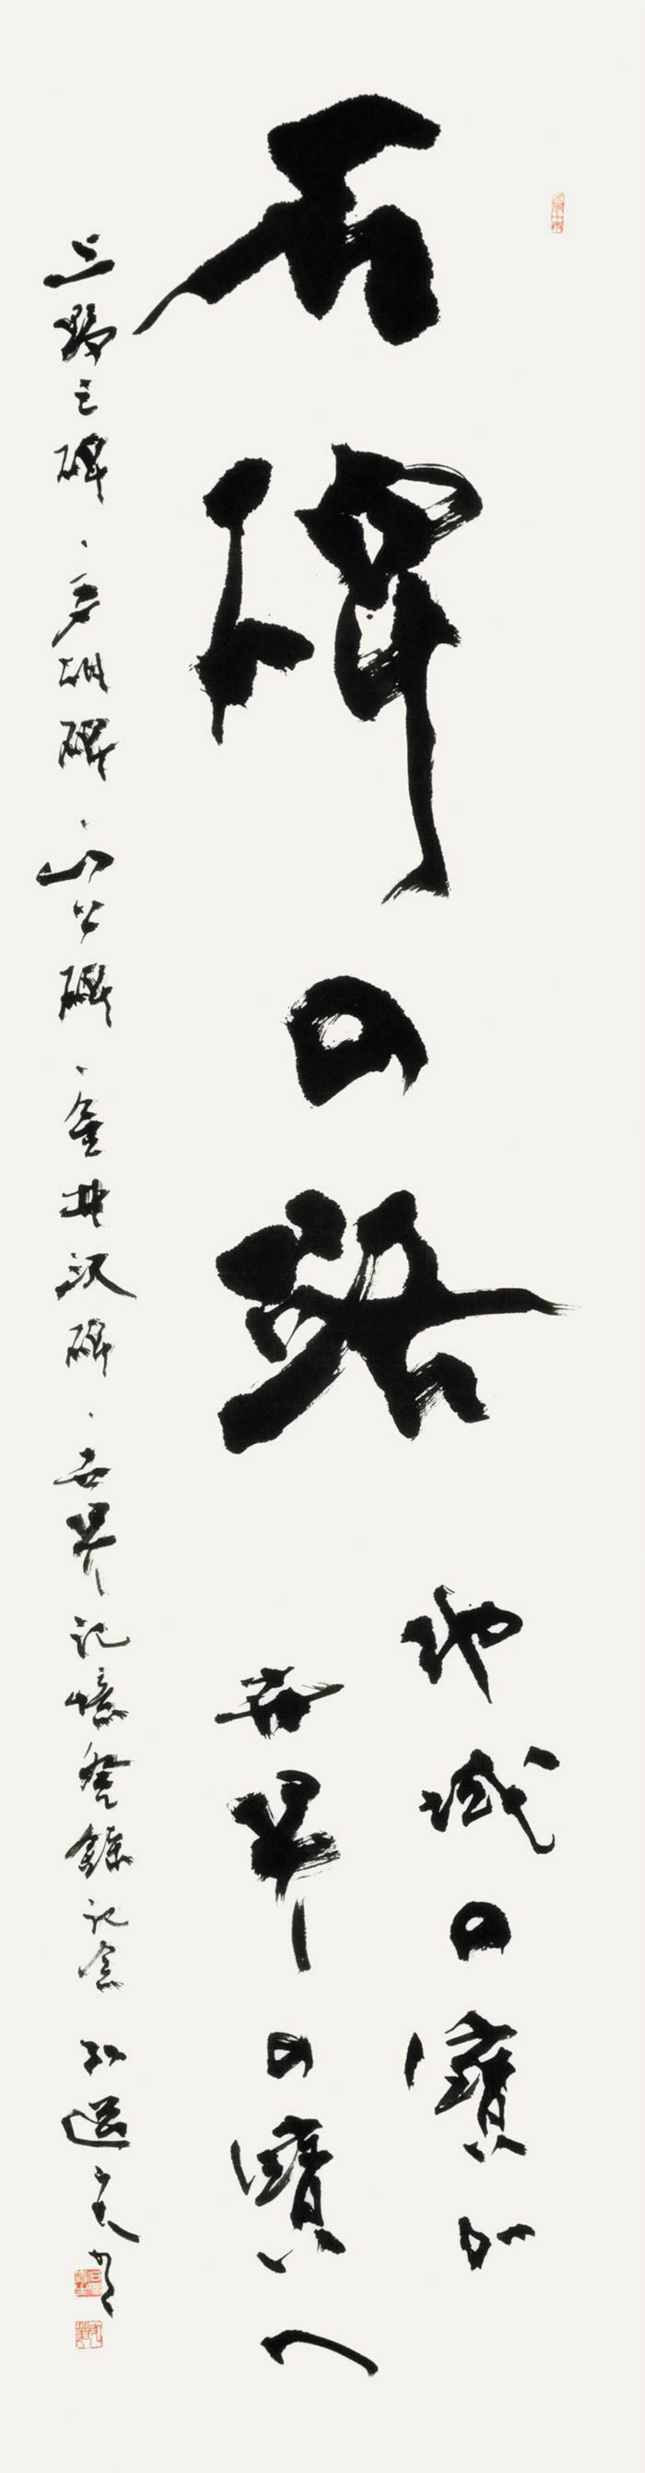 石碑の路
地域の寶が
世界の寶へ
上野三碑・多胡碑・山上碑・金井沢碑・世界記憶登録記念